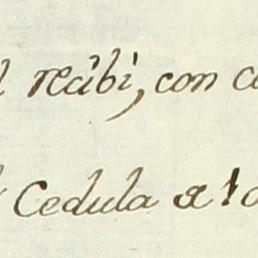 recibi, con
Cedula a